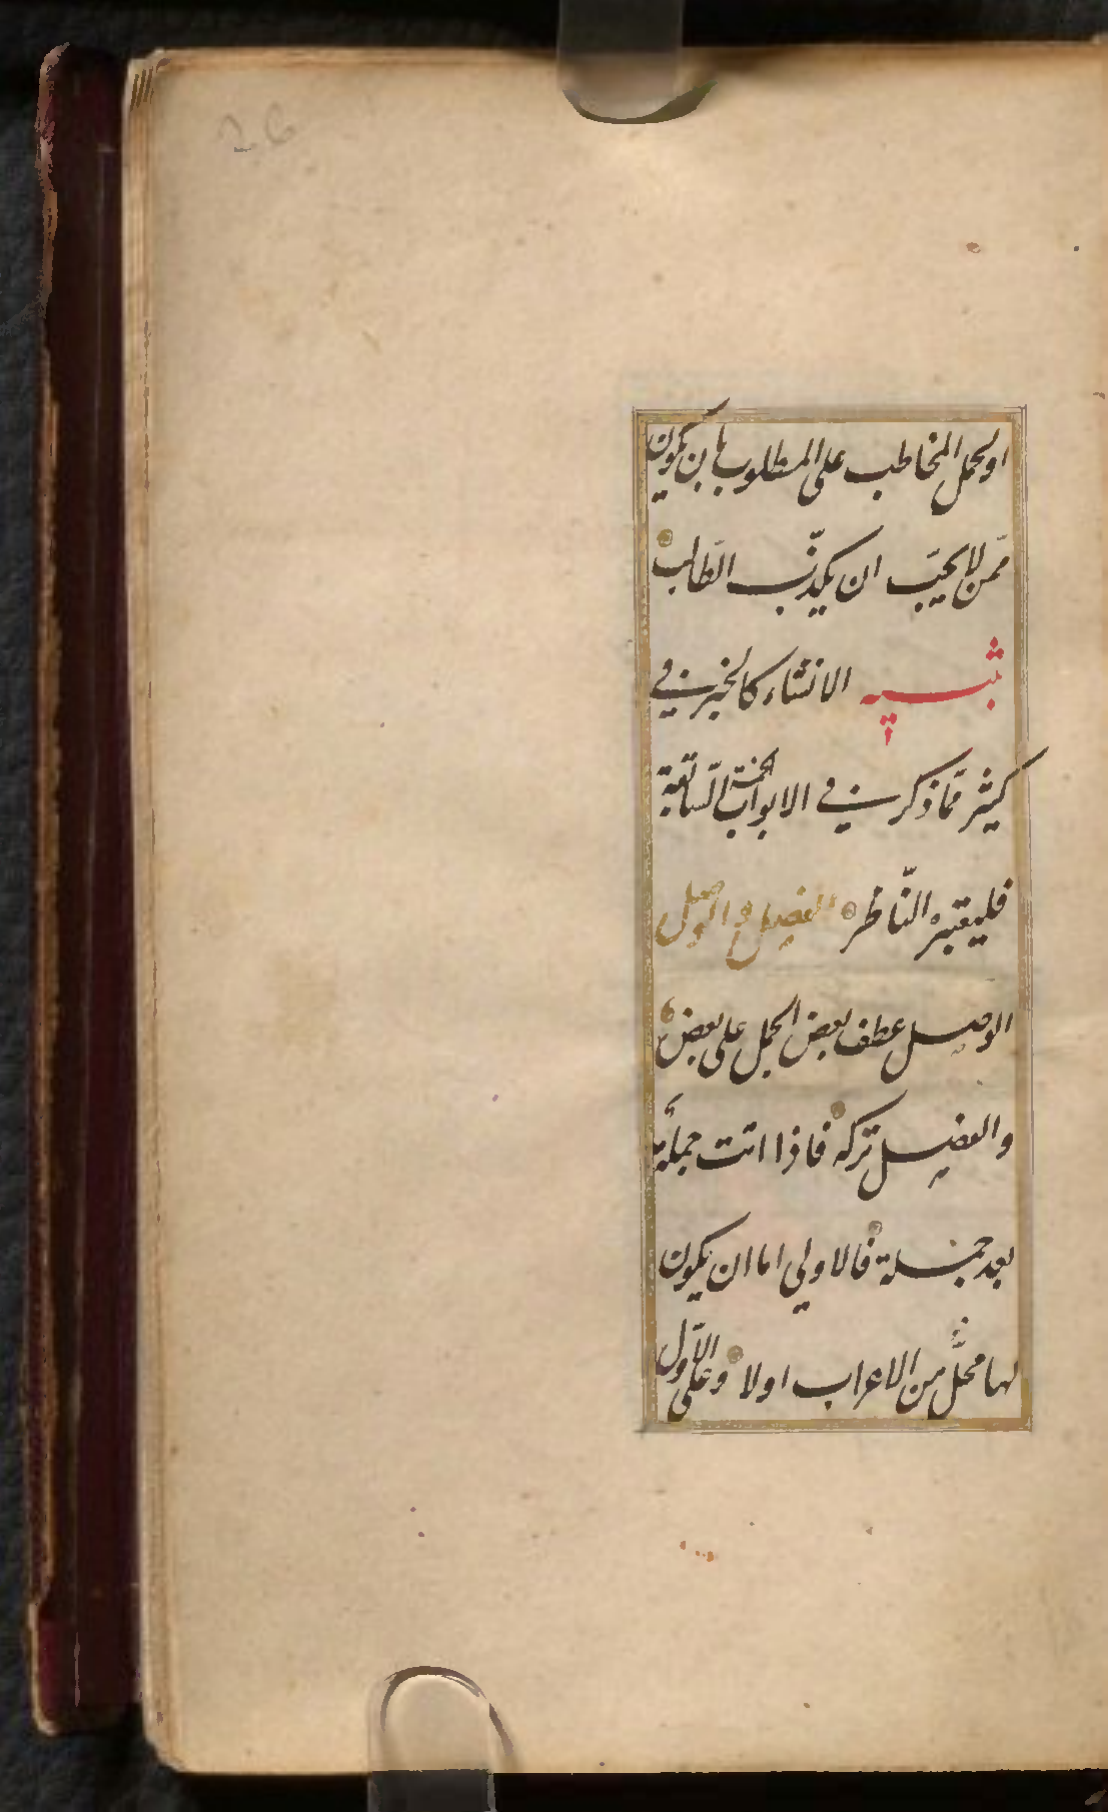 26
او لحمل المخاطب على المطلوب بأن يكون
ممّن لا يحبّ ان يكذّب الطّالب
تنبيه الانشاء كالخبر في
كثير ممّا ذكر في الابواب الخمسة السّابقة
فليعتبره النّاظر الفصل و الوصل
الوصل عطف بعض الجمل على بعض
والفصل تركه فاذا اتت جملة
بعد جملة فالاولى اما ان يكون
لها محلّ من الاعراب اولا وعلى الاوّل